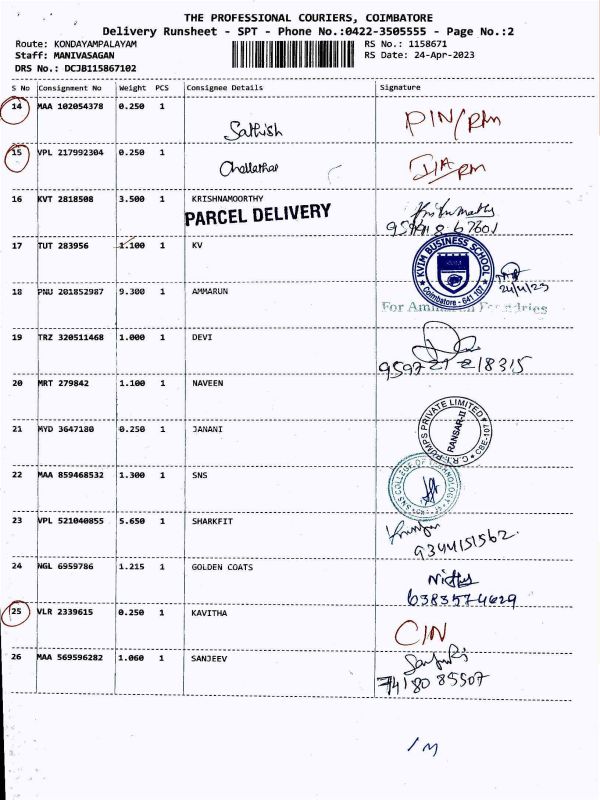 THE PROFESSIONAL COURIERS, COIMBATORE
Delivery Runsheet - SPT - Phone No.:0422-3505555 - Page No.:2
Route: KONDAYAMPALAYAM RS No.: 1158671
Staff: MANIVASAGAN RS Date: 24-Apr-2023
DRS No.: DCJB115867102
S No Consignment No Weight PCS Consignee Details Signature
14 MAA 102054378 0.250 1
Sathish PIN/RM
15 VPL 217992304 0.250 1
Chellathai
16 KVT 2818508 3.500 1 KRISHNAMOORTHY
PARCEL DELIVERY
17 TUT 283956 1.100 1 KV
KVIM BUSINESS SCHOOL
Coimbatore - 641 107
24/4/23
18 PNU 201852987 9.300 1 AMMARUN
19 TRZ 320511468 1.000 1 DEVI
20 MRT 279842 1.100 1 NAVEEN
21 MYD 3647180 0.250 1 JANANI
C.R.I. PUMPS PRIVATE LIMITED
RANSAR-II
22 MAA 859468532 1.300 1 SNS
SNS COLLEGE OF TECHNOLOGY
23 VPL 521040855 5.650 1 SHARKFIT
9344151562
24 NGL 6959786 1.215 1 GOLDEN COATS
6383574629
25 VLR 2339615 0.250 1 KAVITHA
CIN
26 MAA 569596282 1.060 1 SANJEEV
74180 85507